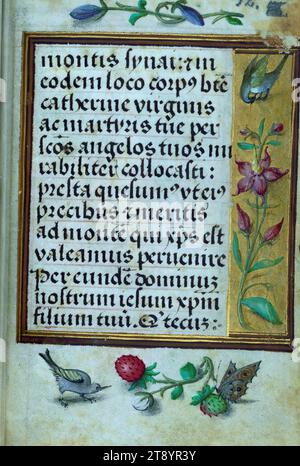 montis synai: & in
eodem loco corpꝰ bte
catherine virginis
ac martyris tue per
scos angelos tuos mi
rabiliter collocasti:
presta quesumꝰ vt eiꝰ
precibus & meritis
ad montē qui xps est
valeamus peruenire
Per eundē dominuz
nostrum iesum xpm
filium tuū. Qui tecuz
alamy
Image ID: 2T8YR3Y
www.alamy.com